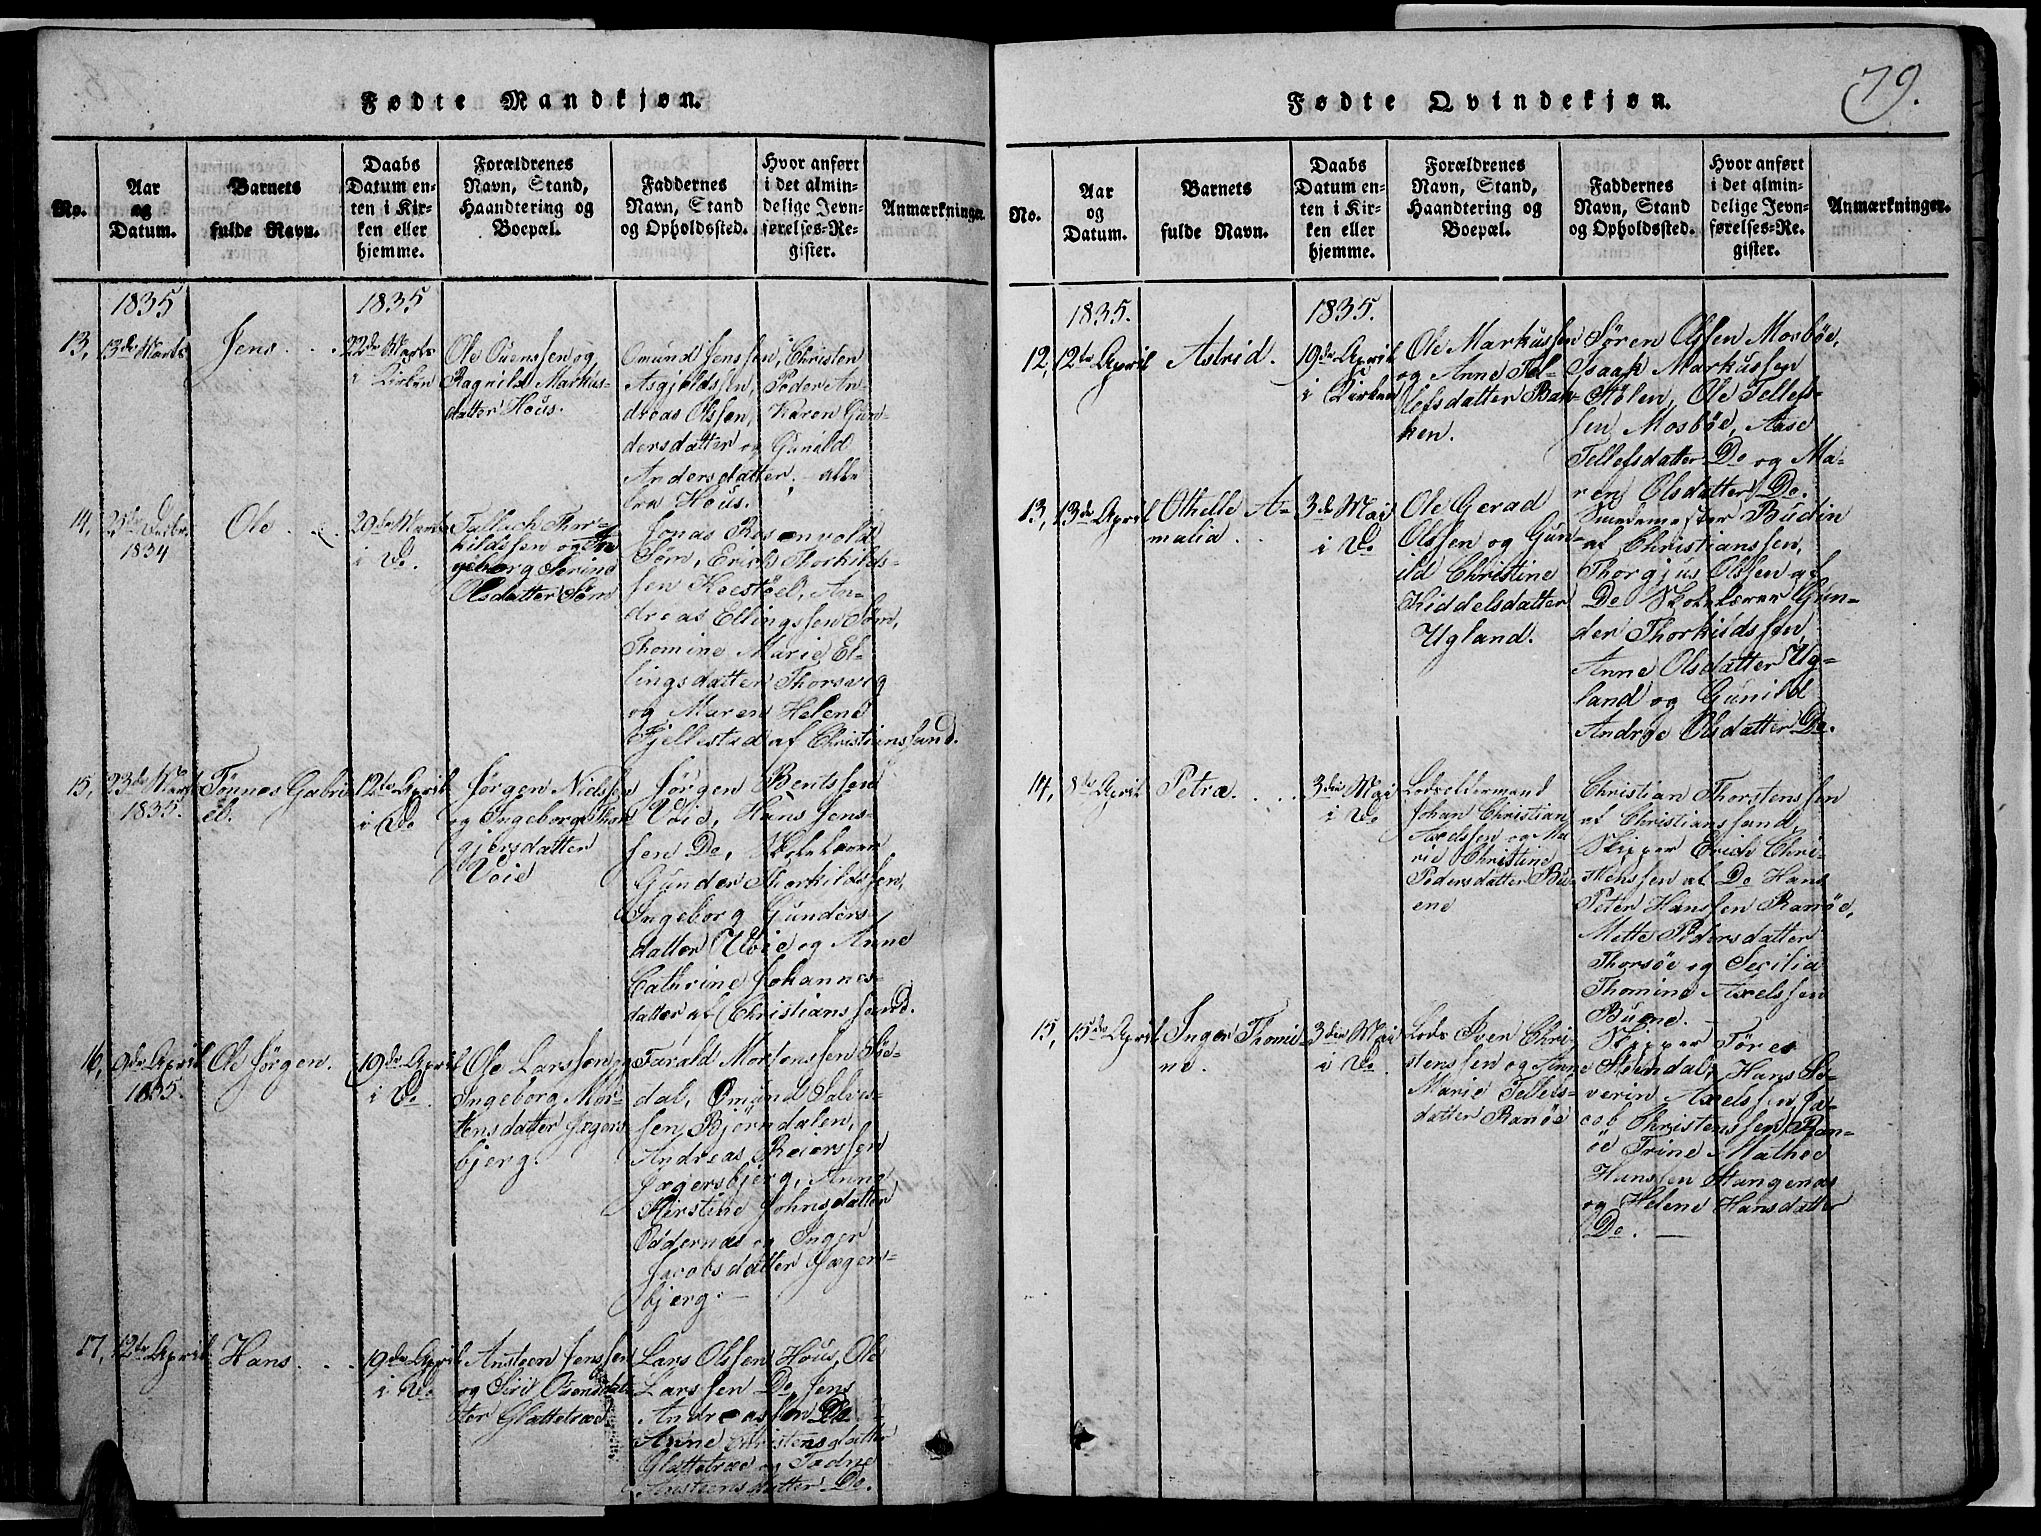 Fødte Mandkjøn.
No.
Aar
og
Datum.
Barnets
fulde Navn.
Daabs
Datum en-
ten i Kir-
ken eller
hjemme.
Forældrenes
Navn, Stand,
Haandtering og
Boepæl.
Faddernes
Navn, Stand
og Opholdssted.
Hvor anført
i det almin-
delige Jevn-
førelses-Re-
gister.
Anmærkninger.
1835
1835
13,
13de Marts
Jens
22de Marts
i Kirken
Ole Ouenssen og
Ragnild Markus-
datter Hous.
Omund Jenssen, Christen
Asgjeldssen, Peder An-
dreas Olssen, Karen Gun-
dersdatter og Gunild
Andersdatter, alle
fra Hous.
14,
1834
Ole
20de Marts
i Do.
Tallach Thor-
kildssen og In-
geborg Serine
Olsdatter Søm
Jonas Rosenvold
Søm, Erich Thorkilds-
sen Koestøel, An-
dreas Ellingssen Søm,
Thomine Marie El-
lingsdatter Thorsvig
og Maren Helene
Fjellestad af Christianssand.
15,
23de Marts
1835.
Tønnes Gabri-
el.
12te April
i Do
Jørgen Nielssen
og Ingeborg Thor-
gjersdatter
Voie
Jørgen Bentssen
Voie, Hans Jens-
sen Do, Skolelærer
Gunder Thorkildssen,
Ingeborg Gunders-
datter Voie og Anne
Cathrine Johannes-
datter af Christianssand.
16,
9de April
1835.
Ole Jørgen.
19de April
i Do
Ole Larssen og
Ingeborg Mor-
tensdatter Jægers-
bjerg.
Tarald Mortenssen Sø-
dal, Omund Salves-
sen Bjørndalen,
Andreas Reierssen
Jægersbjerg, Anne
Kirstine Johnsdatter
Oddernæs og Inger
Jacobsdatter Jægers-
bjerg.
17,
12te April
Hans
19de April
i Do
Austeen Jenssen
og Siri Osmunds-
ter Glattetræe
Lars Olssen Hous, Ole
Larssen Do, Jens
Andreassen Do,
Anne Christensdatter
Glattetræe og Tadne
Austeensdatter Do.
79.
Fødte Qvindekjøn.
No.
Aar
og
Datum.
Barnets
fulde Navn.
Daabs
Datum en-
ten i Kir-
ken eller
hjemme.
Forældrenes
Navn, Stand,
Haandtering og
Boepæl.
Faddernes
Navn, Stand
og Opholdssted.
Hvor anført
i det almin-
delige Jevn-
førelses-Re-
gister.
Anmærkninger.
1835.
1835.
12,
12te April
Astrid.
19de April
i Kirken
Ole Markussen
og Anne Tel-
lefsdatter Bak-
ken.
Søren Olssen Mosbøe,
Isaak Markussen
Stølen, Ole Tellefs-
sen Mosbøe, Aase
Tellefsdatter Do og Ma-
ren Olsdatter Do.
13,
13de April
Othelle A-
malia
3die Mai
i Do
Ole Gerad
Olssen og Gun-
ild Christine
Kiddelsdatter
Ugland.
Smedemester Budin
af Christianssen,
Thorgjus Olssen af
Do Skolelærer Gun-
der Thorkildssen,
Anne Olsdatter Ug-
land og Gunild
Andree Olsdatter Do.
14,
8de April
Petra.
3die Mai
i Do
Lodsoldermand
Johan Christian
Axelssen og Ma-
rie Christine
Pedersdatter Bu-
ene
Christian Thorstenssen
af Christianssand,
Skipper Erich Chri-
stenssen af Do Hans
Peter Hanssen Ranøe,
Mette Pedersdatter
Thorsøe og Secilia
Thomine Axelssen
Buene.
15,
15de April
Inger Thomi-
ne.
3die Mai
i Do
Lods Iver Chri-
stenssen og Anne
Marie Tellefs-
datter Ranøe
Skipper Tøres
Steendal, Hans Se-
verin Axelssen Ja-
cob Christenssen Ran-
øe Trine Mathee
Hanssen Stangenæs
og Helene Hansdatter
Do.